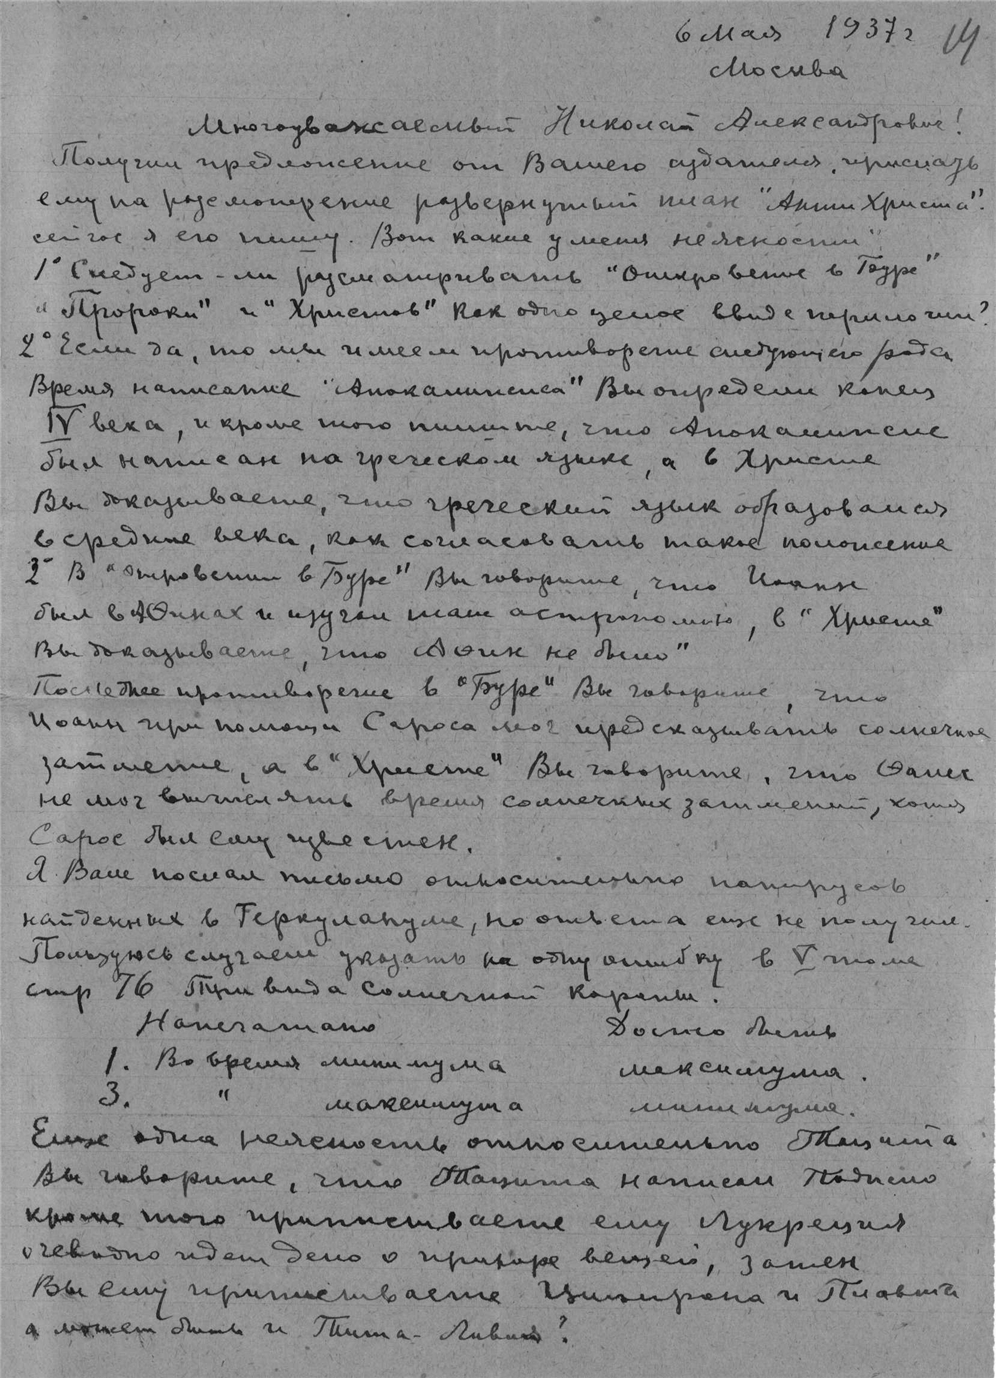 6 Мая 1937 г 14
Москва
Многоуважаемый Николай Александрович!
Получил предложение от Вашего издателя, прислать
ему на рассмотрение развернутый план "АнтиХриста".
сейчас я его пишу. Вот какие у меня неясности"
1° Следует-ли рассматривать "Откровение в Буре"
"Пророки" и "Христов" как одно целое ввиде трилогии?
2° Если да, то мы имеем противоречие следующего рода
Время написание "Апокалипсиса" Вы определи конец
IV века, и кроме того пишите, что Апокалипсис
был написан на греческом языке, а в Христе
Вы доказываете, что греческий язык образовался
в средние века, как согласовать такое положение
3° В "Откровении в Буре" Вы говорите, что Иоанн
был в Афинах и изучал там астрономию, в "Христе"
Вы доказываете, что Афин не было"
Последнее противоречие в "Буре" Вы говорите, что
Иоанн при помощи Сароса мог предсказывать солнечное
затмение, а в "Христе" Вы говорите, что Фалес
не мог вычислять время солнечных затмений, хотя
Сарос был ему известен.
Я Вам послал письмо относительно папирусов
найденных в Геркулануме, но ответа еще не получил.
Пользуюсь случаем указать на одну ошибку в V томе
стр 76 Три вида солнечной короны.
Напечатано Должо быть
1. Во время минимума максимума.
3. " максимума минимума.
Еще одна неясность относительно Тацита
Вы говорите, что Тацита написал Поджио
кроме того приписываете ему Лукреция
очевидно идет дело о природе вещей, затем
Вы ему приписываете Цицерона и Плавта
а может быть и Тита-Ливия?